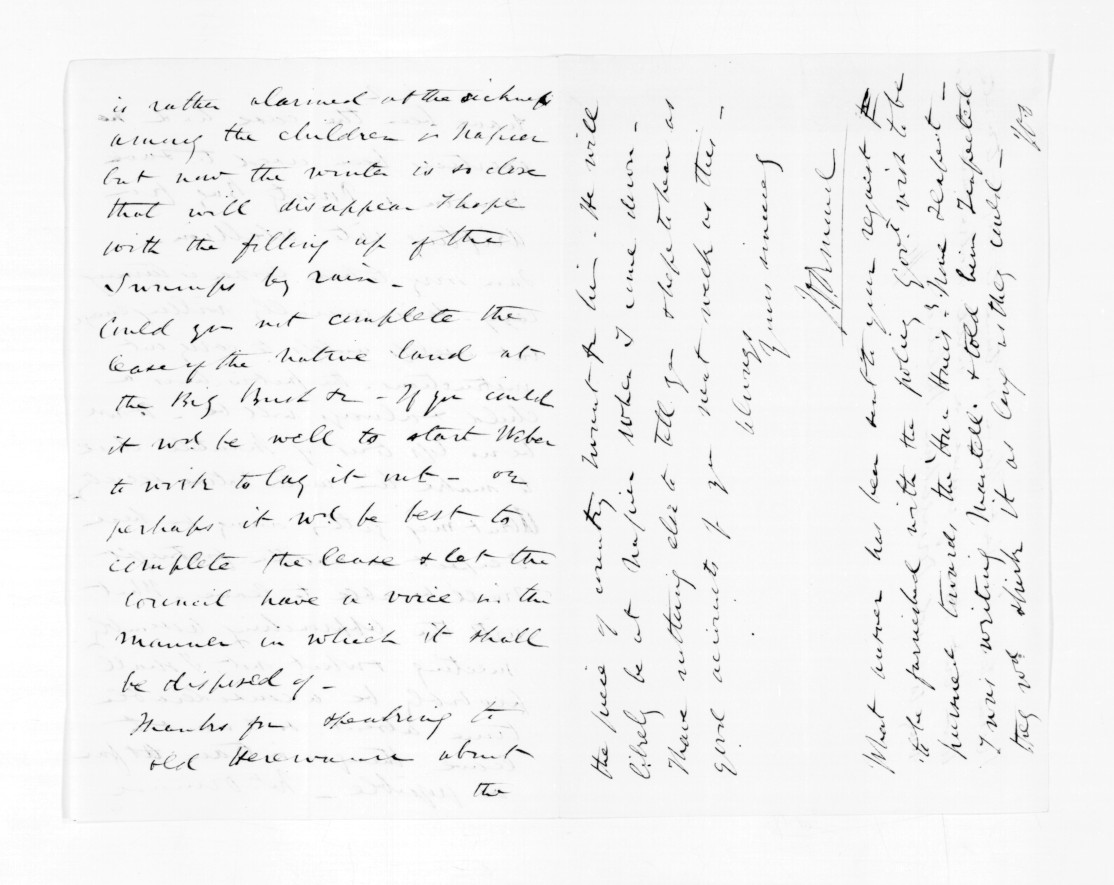 is rather alarmed at the sickness
among the children & Napier
but now the winter is so close
that will disappear I hope
with the filling up of the
Swamps by rain -
Could you not complete the
lease of the native land at
the Big Bush & - If you could
it wd. be well to start Weber
to work to lay it out - or
perhaps it wd. be best to
complete the lease & let the
Council have a voice in the
manner in which it shall
be disposed of -
Thanks for speaking to
old about
the
the piece of country for him. He will
likely be at Napier when I come down -
I have nothing else to tell you & hope to hear as
good accounts of you next week as this -
always
Yours sincerely
What answer has been sent to your request
to be furnished with the policy Govt. wish to be
pursued towards the Hau Haus? None I expect -
I was writing Mantell & told him I expected
they wd. shirk it as long as they could -